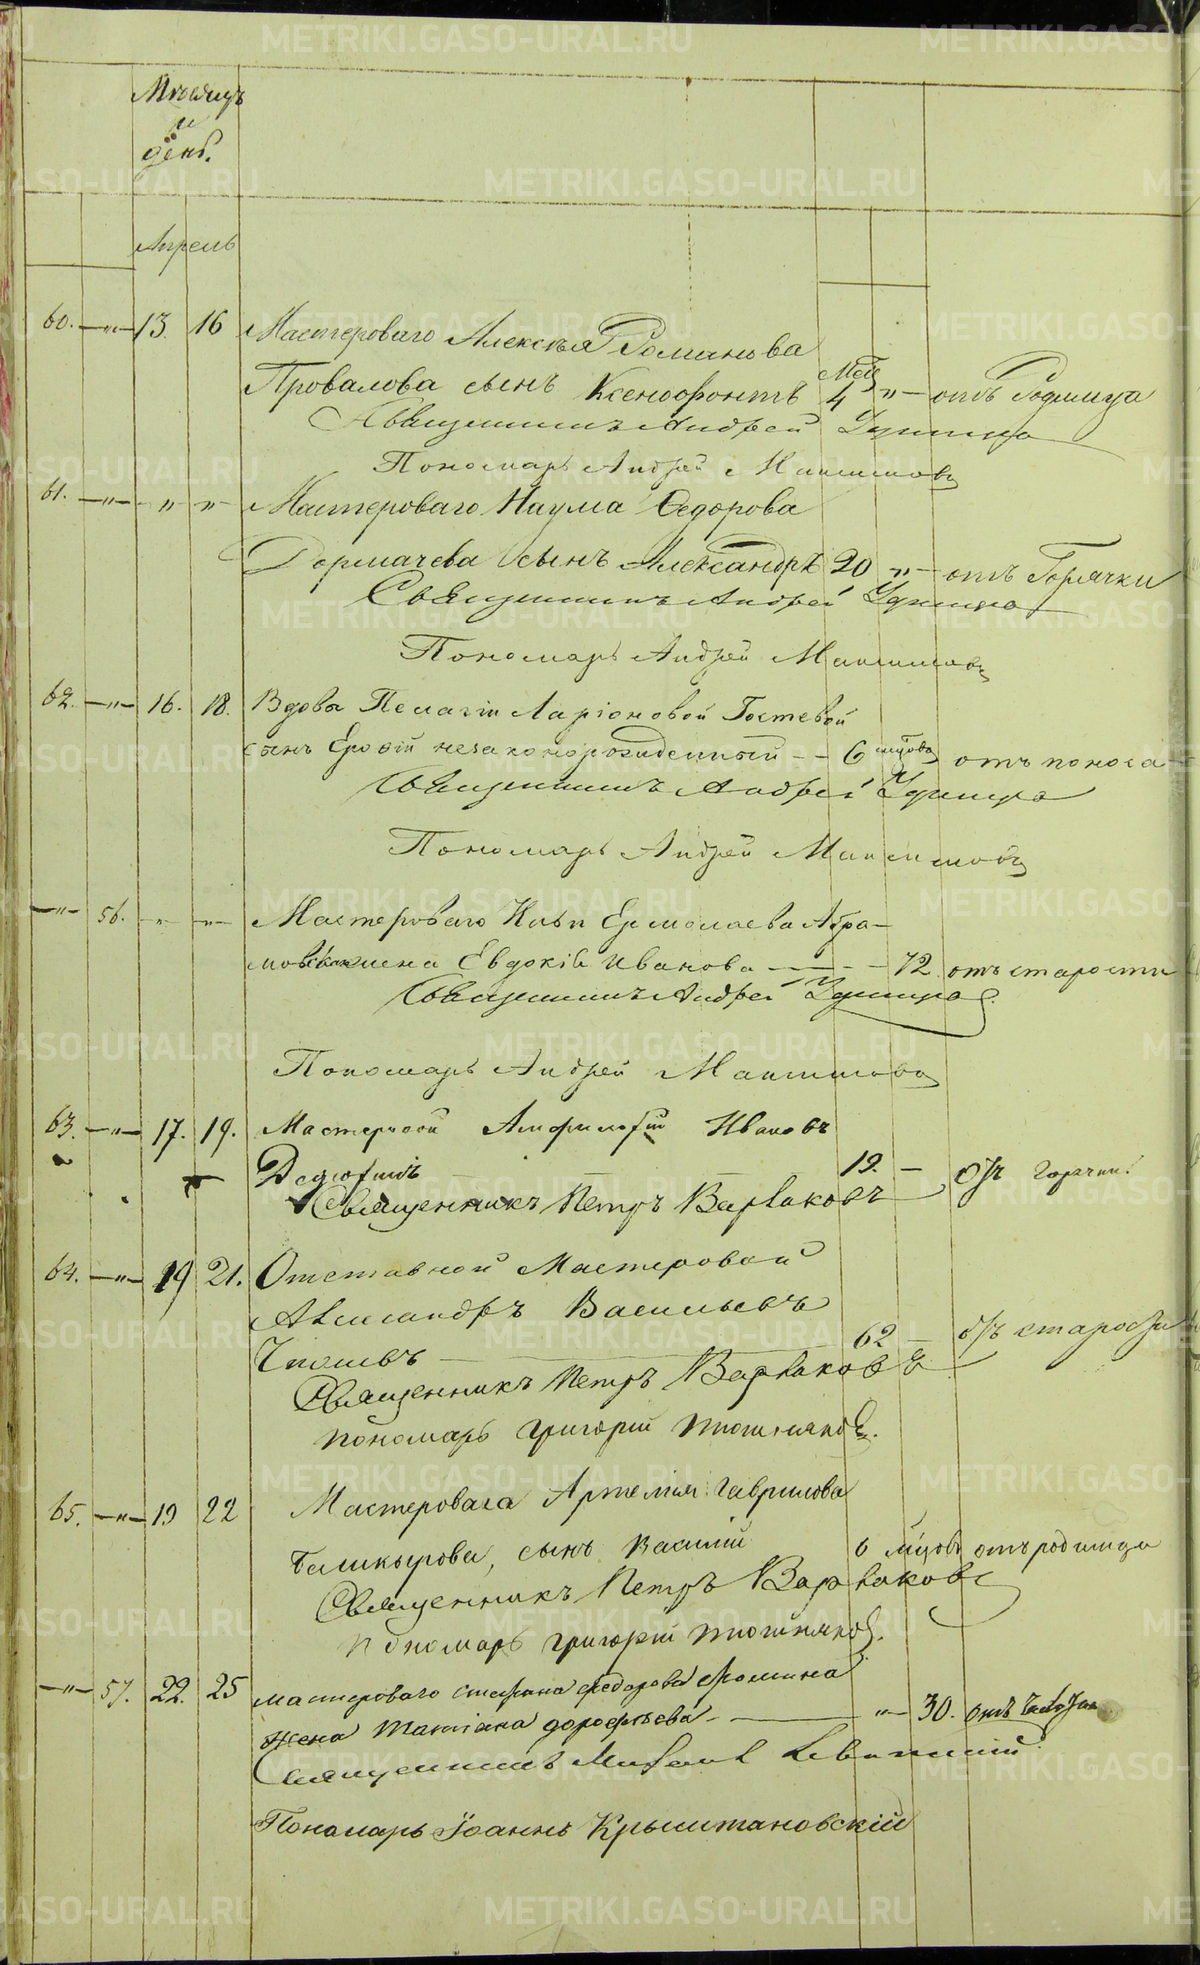 Мѣсяцъ
и
день.
Апрель
60. —"— 13. 16 Мастероваго Алексѣя Романова
Провалова сынъ Ксенофонтъ 4 "— отъ Родимца
Священникъ Андрей Удинцо
Пономарь Андрей Максимовъ
61. —"— " " Мастероваго Наума Ѳедорова
Дормачева сынъ Александръ 20 "— отъ Горячки
Священникъ Андрей Удинцо
Пономарь Андрей Максимовъ
62. —"— 16. 18. Вдова Пелагіи Ларіоновой Гостевой
сынъ Ерофій незаконорожденный -- 6 мцовъ отъ поноса
Священникъ Андрей Удинцо
Пономарь Андрей Максимовъ
—"— 56. " " Мастероваго Ильи Ермолаева Абра-
мова жена Евдокія Иванова — 72. отъ старости
Священникъ Андрей Удинцо
Пономарь Андрей Максимовъ
63. —"— 17. 19. Мастеровой Амфилофій Ивановъ
19. — отъ горячки.
Священникъ Петръ Варваковъ
64. —"— 19 21. Отставной Мастеровой
Александръ Васильевъ
62 — отъ старости
Священникъ Петръ Варваковъ
пономарь григорій
65. —"— 19 22 Мастероваго Артемія Гаврилова
Башкырова, сынъ Василій 6 мцовъ отъ родимца
Священникъ Петръ Варваковъ
пономарь григорій
—"— 57. 22. 25 мастероваго стефана федорова фомина
жена татіана дорофѣева — "— 30. отъ
Священникъ Левитскій
Пономарь Іоаннъ Крыштановскій
METRIKI.GASO-URAL.RU